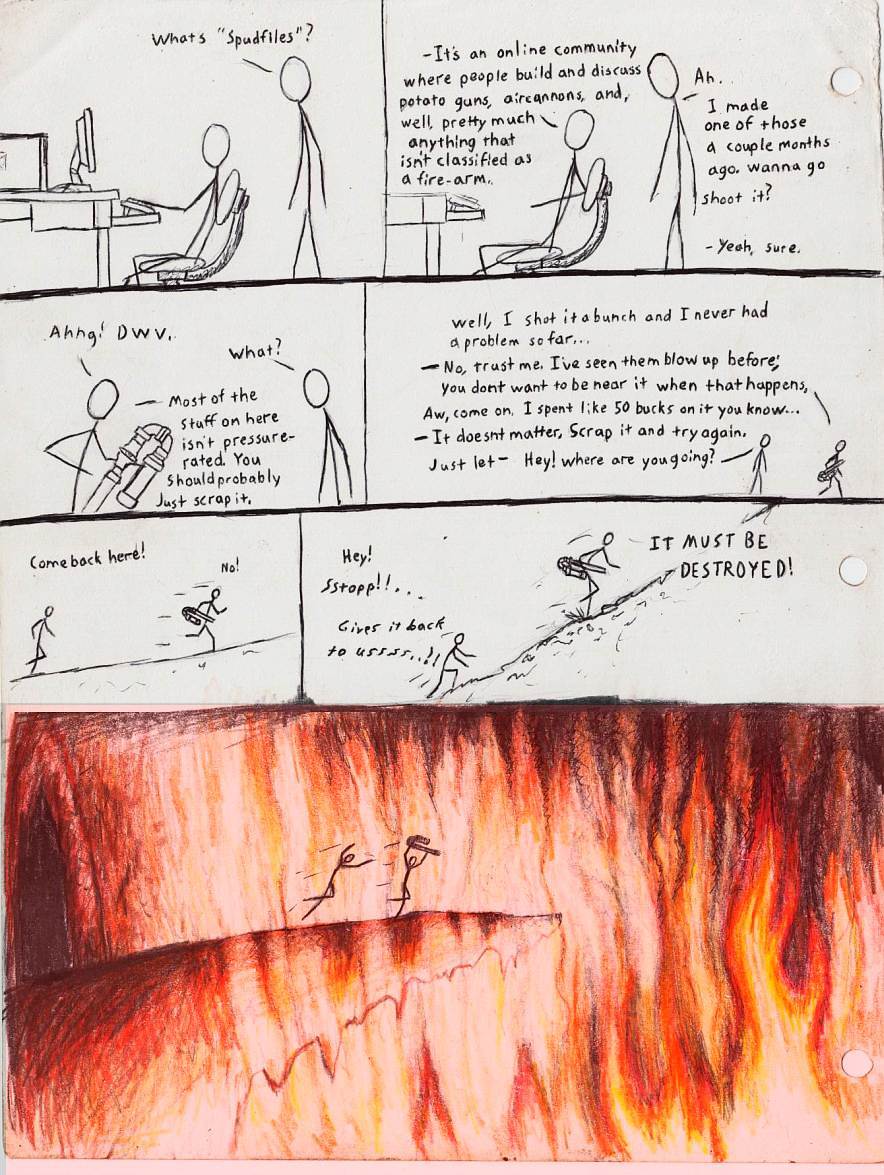 Whats "Spudfiles"?
-It's an online community
where people build and discuss
potato guns, aircannons, and,
well, pretty much
anything that
isn't classified as
a fire-arm.
Ah.
I made
one of those
a couple months
ago. wanna go
shoot it?
- Yeah, sure.
Ahhg! DWV.
What?
— Most of the
stuff on here
isn't pressure-
rated. You
should probably
Just scrap it.
Well, I shot it a bunch and I never had
a problem so far...
— No, trust me. I've seen them blow up before;
you dont want to be near it when that happens,
Aw, come on. I spent like 50 bucks on it you know...
— It doesnt matter, Scrap it and try again.
Just let— Hey! where are you going?
Come back here!
No!
Hey!
SStopp!!...
Gives it back
to ussss..!!
IT MUST BE
DESTROYED!